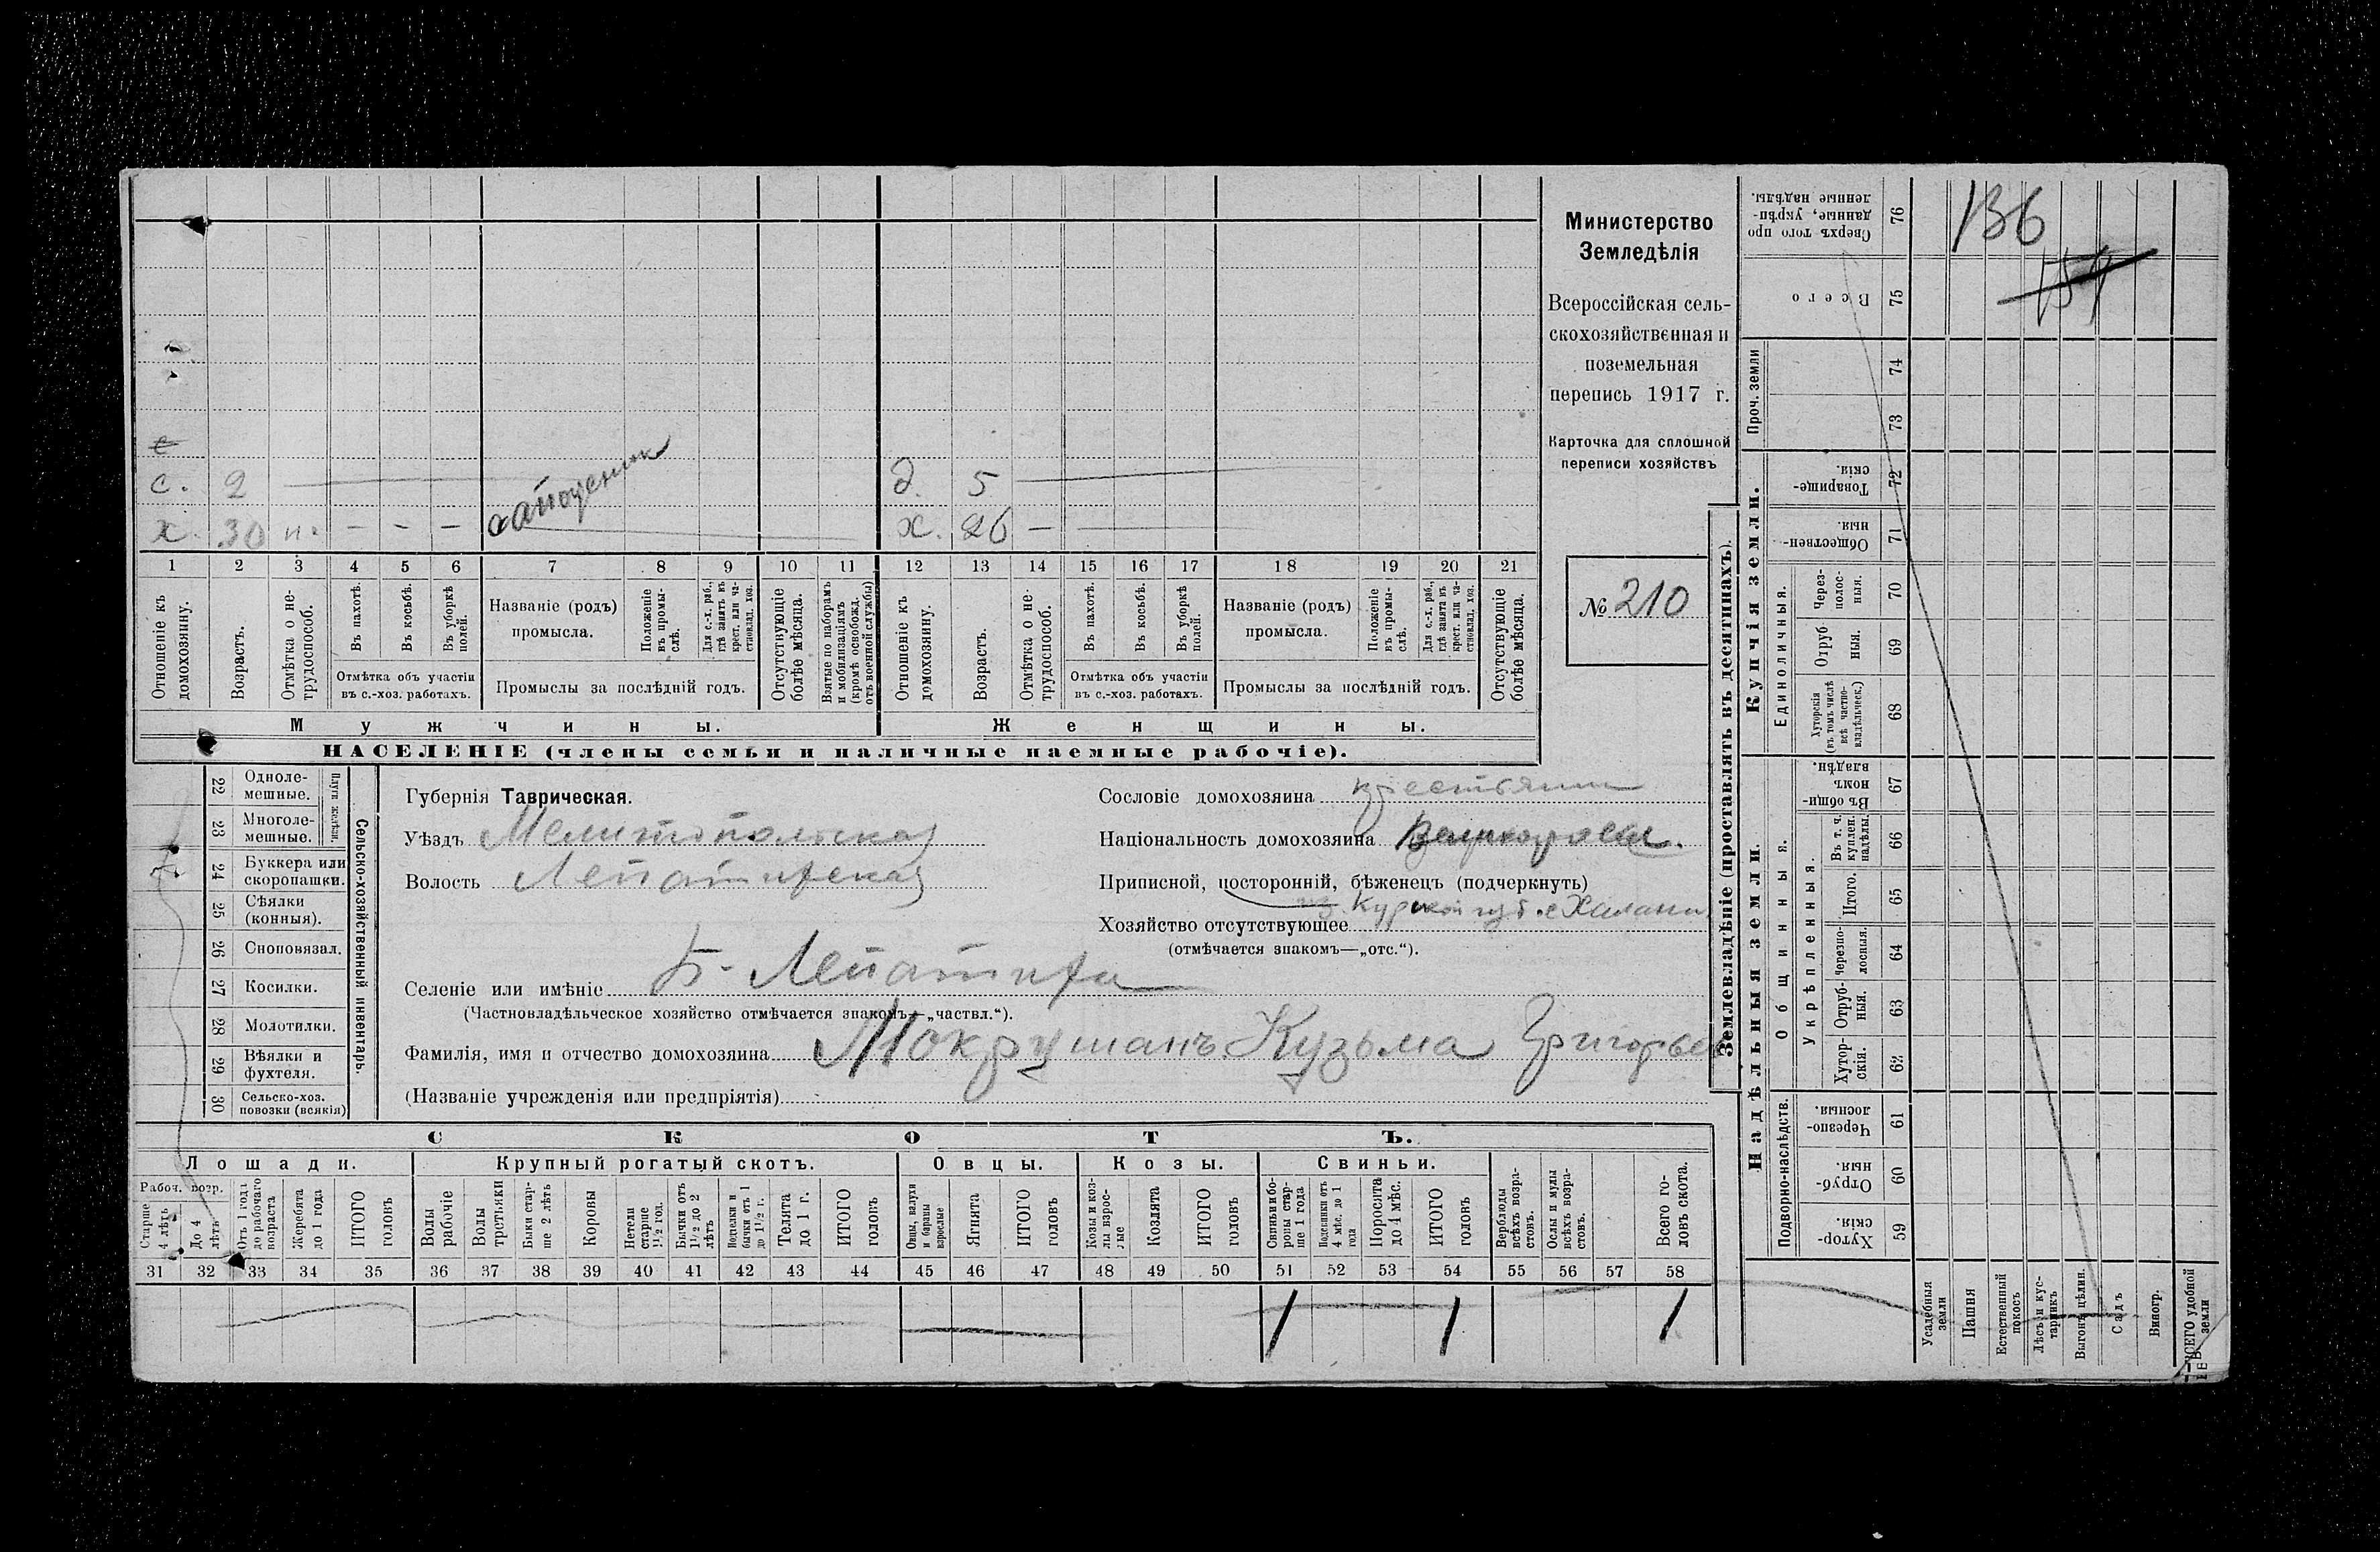 Министерство
Земледѣлія
Всероссійская сель-
скохозяйственная и
поземельная
перепись 1917 г.
Карточка для сплошной
переписи хозяйствъ
№ 210
с
с. 2 д. 5
х. 30 н. — — — х. 26 —
1 2 3 4 5 6 7 8 9 10 11 12 13 14 15 16 17 18 19 20 21
Отношеніе къ домохозяину.
Возрастъ.
Отмѣтка о не-трудоспособ.
Въ пахотѣ.
Въ косьбѣ.
Въ уборкѣ полей.
Отмѣтка объ участіи въ с.-хоз. работахъ.
Названіе (родъ) промысла.
Положеніе въ промы-слѣ.
Для с.-х. раб., гдѣ занятъ въ крест. или ча-стновлад. хоз.
Промыслы за послѣдній годъ.
Отсутствующіе болѣе мѣсяца.
Взятые по наборамъ и мобилизаціямъ (кромѣ освобожд. отъ военной службы)
Отношеніе къ домохозяину.
Возрастъ.
Отмѣтка о не-трудоспособ.
Въ пахотѣ.
Въ косьбѣ.
Въ уборкѣ полей.
Отмѣтка объ участіи въ с.-хоз. работахъ.
Названіе (родъ) промысла.
Положеніе въ промы-слѣ.
Для с.-х. раб., гдѣ занята въ крест. или ча-стновлад. хоз.
Промыслы за послѣдній годъ.
Отсутствующіе болѣе мѣсяца.
Мужчины. Женщины.
НАСЕЛЕНІЕ (члены семьи и наличные наемные рабочіе).
22 Одноле-мешные.
23 Многоле-мешные.
24 Буккера или скоропашки.
25 Сѣялки (конныя).
26 Сноповязал.
27 Косилки.
28 Молотилки.
29 Вѣялки и фухтеля.
30 Сельско-хоз. повозки (всякія)
Сельско-хозяйственный инвентарь.
Губернія Таврическая.
Уѣздъ Мелитопольская
Волость Лепатихская
Сословіе домохозяина крестьянин
Національность домохозяина Великоросс.
Приписной, посторонній, бѣженецъ (подчеркнуть)
из Курской губ. с
Хозяйство отсутствующее
(отмѣчается знакомъ—„отс.“).
Селеніе или имѣніе Б-Лепатиха
(Частновладѣльческое хозяйство отмѣчается знакомъ—„частвл.“).
Фамилія, имя и отчество домохозяина Мокрушанъ Кузьма Григорьев
(Названіе учрежденія или предпріятія)
СКОТЪ.
Лошади. Крупный рогатый скотъ. Овцы. Козы. Свиньи.
Рабоч. возр.
Старше 4 лѣтъ
До 4 лѣтъ
Отъ 1 года до рабочаго возраста
Жеребята до 1 года
ИТОГО головъ
Волы рабочіе
Волы третьяки
Быки стар-ше 2 лѣтъ
Коровы
Нетели старше 1½ год.
Бычки отъ 1½ до 2 лѣтъ
Нетелки и бычки отъ 1 до 1½ г.
Телята до 1 г.
ИТОГО головъ
Овцы, валухи и бараны взрослые
Ягнята
ИТОГО головъ
Козы и коз-лы взрос-лые
Козлята
ИТОГО головъ
Свиньи и бо-ровы стар-ше 1 года
Подсвинки отъ 4 мѣс. до 1 года
Поросята до 4 мѣс.
ИТОГО головъ
Верблюды всѣхъ возра-стовъ.
Ослы и мулы всѣхъ возра-стовъ.
Всего го-ловъ скота.
31 32 33 34 35 36 37 38 39 40 41 42 43 44 45 46 47 48 49 50 51 52 53 54 55 56 57 58
1 1 1
Землевладѣніе (проставлять въ десятинахъ).
Надѣльныя земли. Купчія земли. Проч. земли
Подворно-наслѣдств.
Общинныя.
Укрѣпленныя.
Единоличныя.
76 Сверхъ того про данные, укрѣп-ленные надѣлы.
75 Всего
74
73
72 Товарище-скія.
71 Обществен-ныя.
70 Через-полос-ныя.
69 Отруб ныя.
68 Хуторскія (въ томъ числѣ всѣ частно-владѣльческ.)
67 Въ общи-номъ владѣн.
66 Въ т. ч. куплен. надѣлы.
65 Итого.
64 Черезпо-лосныя.
63 Отруб-ныя.
62 Хутор-скія.
61 Черезпо-лосныя.
60 Отруб-ныя.
59 Хутор-скія.
136
Усадебныя земли
Пашня
Естественный покосъ
Лѣсъ и кус-тарникъ
Выгонъ цѣлин.
Садъ
Виногр.
ВСЕГО удобной земли